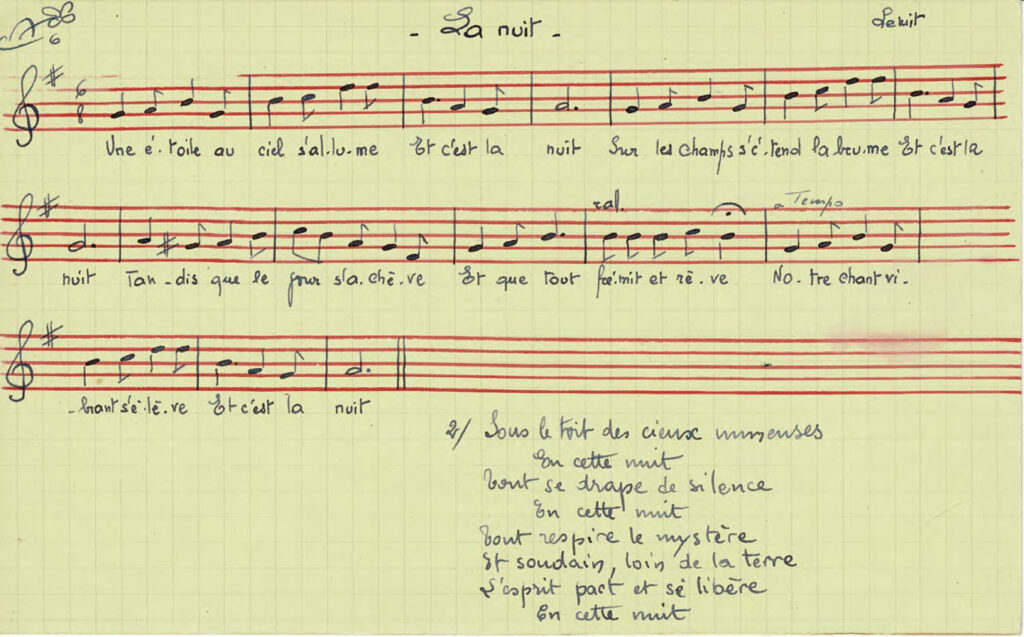 6
- La nuit -
6
8
Une é-toile au ciel s'al-lu-me Et c'est la nuit Sur les champs s'é-tend la bru-me Et c'est la
ral. a Tempo
nuit Tan-dis que le jour s'a-chè-ve Et que tout fré-mit et rê-ve No-tre chant vi-
-brant s'é-lè-ve Et c'est la nuit
2/ Sous le toit des cieux immenses
En cette nuit
Tout se drape de silence
En cette nuit
Tout respire le mystère
Et soudain, loin de la terre
L'esprit part et se libère
En cette nuit